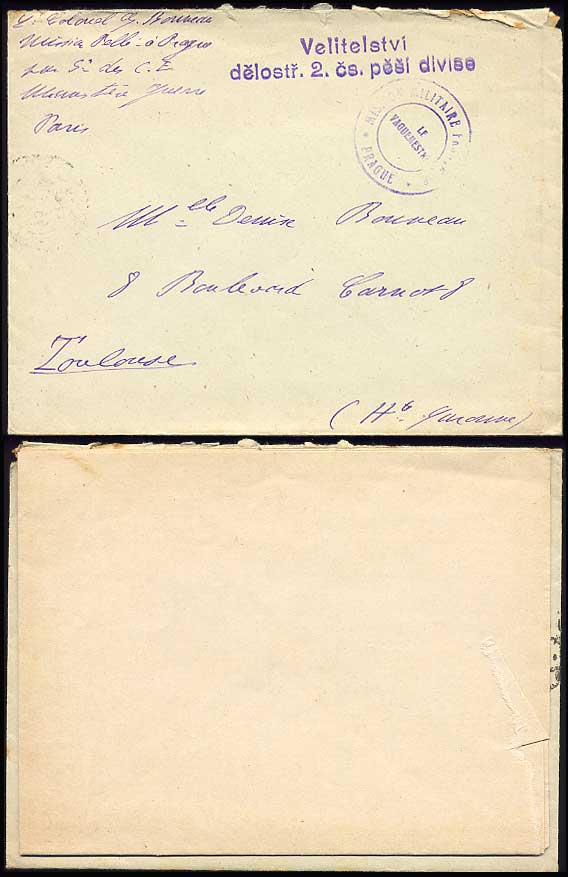 Lt Colonel G. Bonneau
Mission Pellé à Prague
par S. des C. E
Ministère Guerre
Paris
Velitelství
dělostř. 2. čs. pěší divise
MISSION MILITAIRE
LE
VAGUEMESTRE
* PRAGUE *
Melle Denise Bonneau
8 Boulevard Carnot 8
Toulouse
(Hte Garonne)